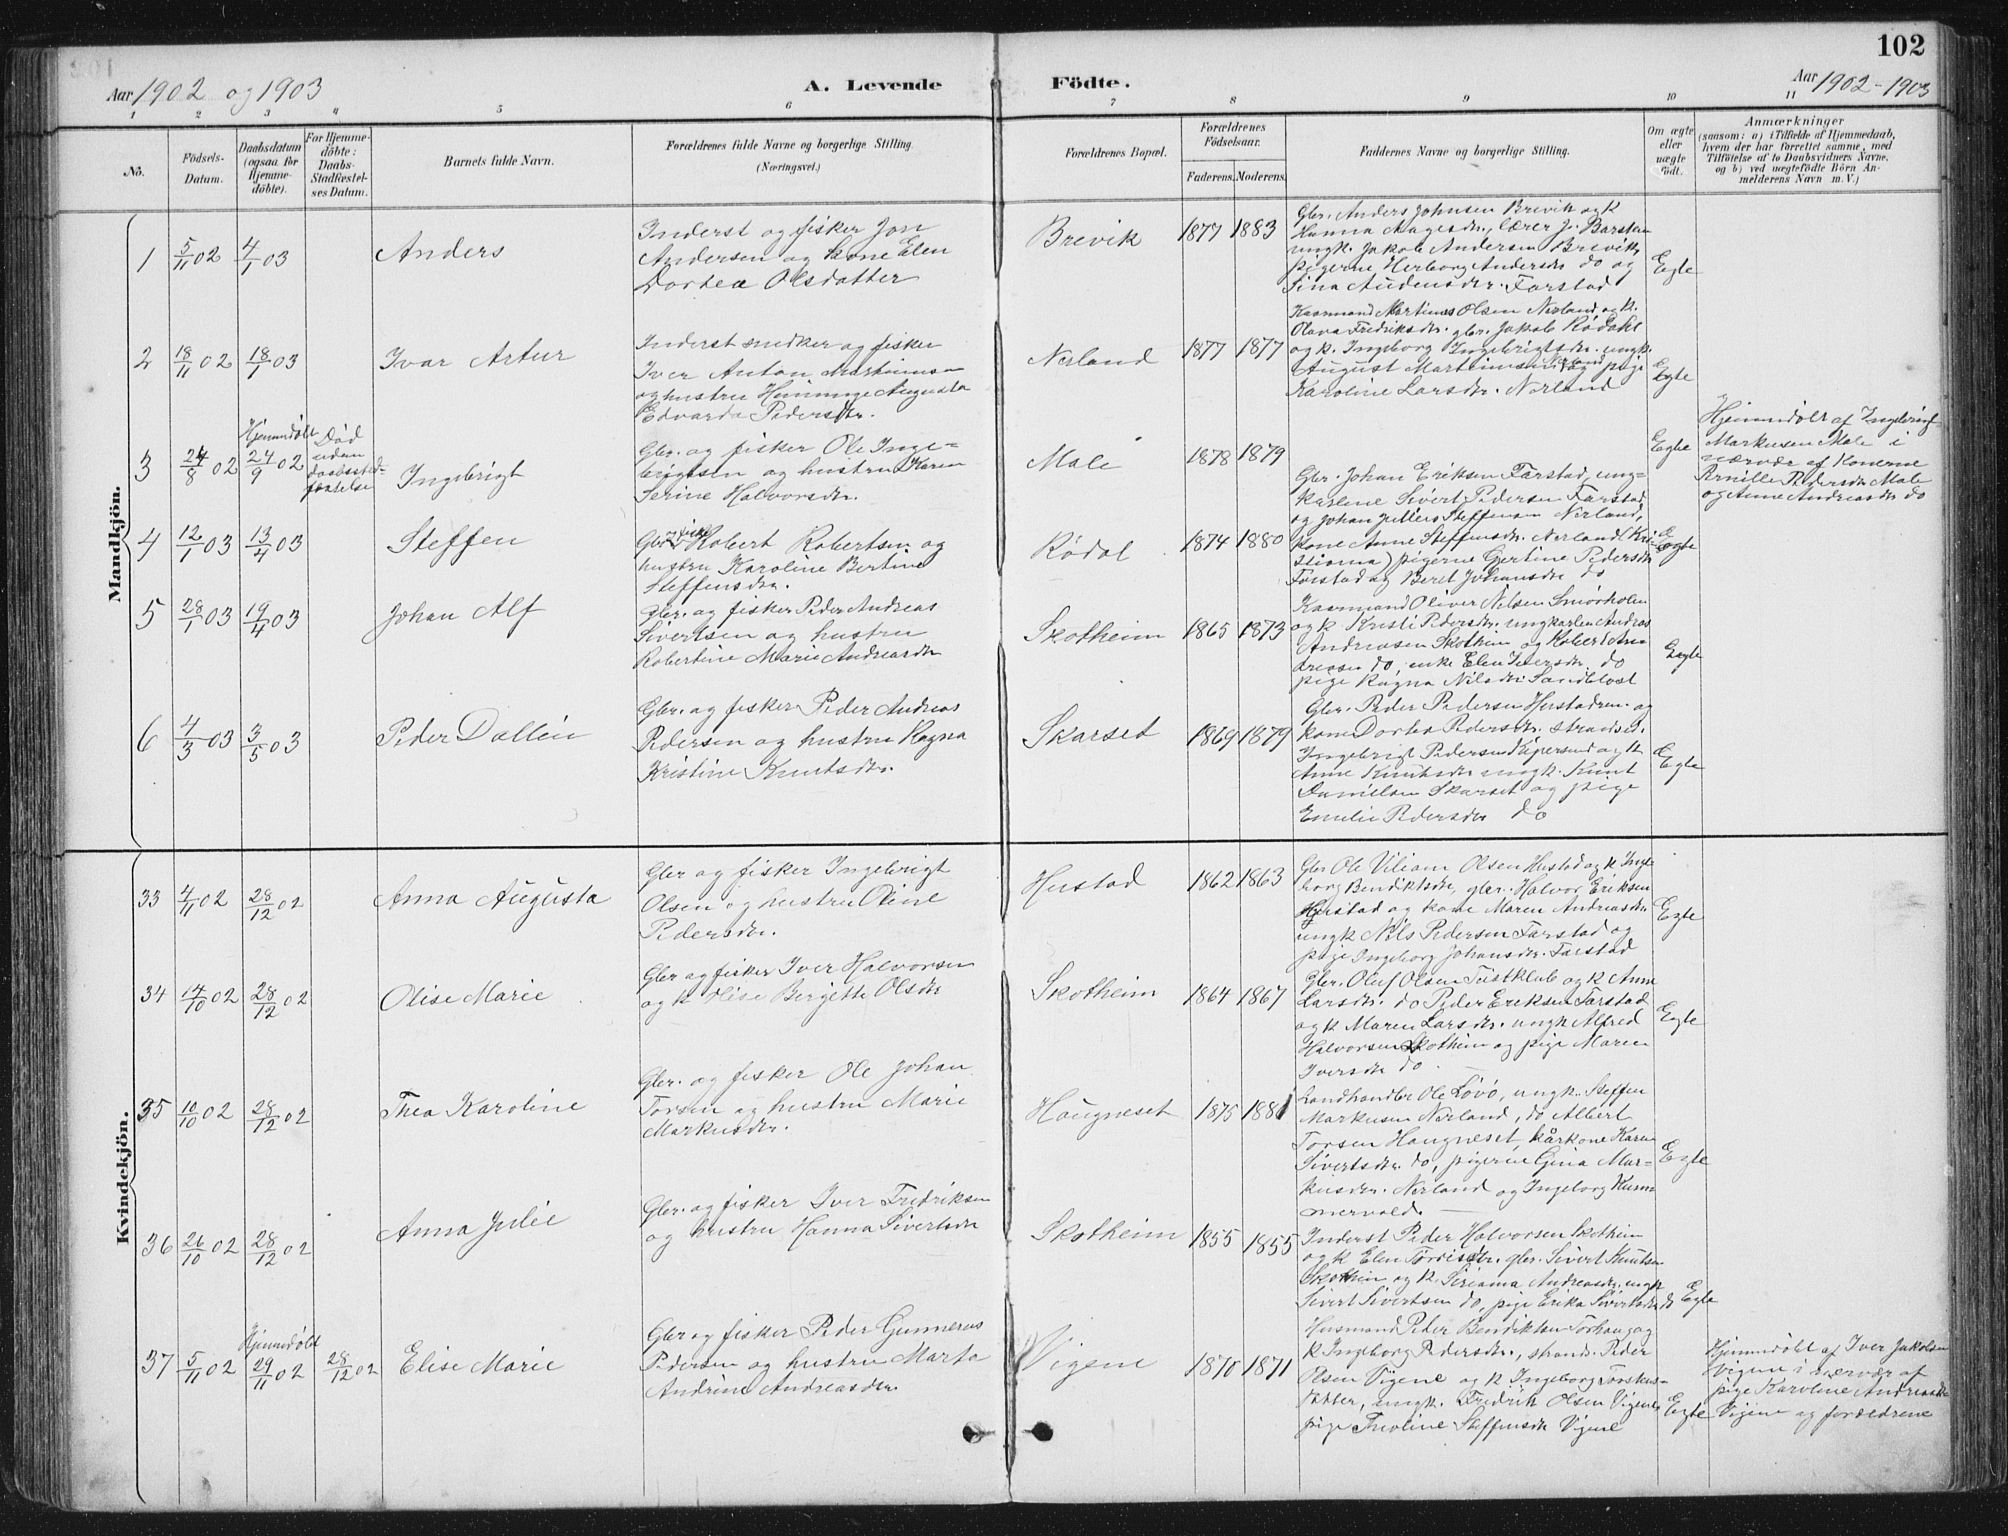 102
Aar 1902 og 1903
A. Levende Födte.
Aar 1902-1903
1 2 3 4 5 6 7 8 9 10 11
No.
Födsels-Datum.
Daabsdatum (ogsaa for Hjemme-döbte).
For Hjemme-döbte: Daabs-Stadfæstel-ses Datum.
Barnets fulde Navn.
Forældrenes fulde Navne og borgerlige Stilling. (Næringsvei.)
Forældrenes Bopæl.
Forældrenes Födselsaar.
Faderens. Moderens.
Faddernes Navne og borgerlige Stilling.
Om ægte eller uægte födt.
Anmærkninger
(saasom: a) i Tilfælde af Hjemmedaab, hvem der har forrettet samme, med Tilföielse af to Daabsvidners Navne, og b) ved uægtefödte Börn An-melderens Navn m. V.)
Mandkjön.
1 5/11 02 4/1 03 Anders
Inderst og fisker Jon
Andersen og kone Elen
Dortea Olsdatter
Brevik 1877 1883
Gbr. Anders Johnsen Brevik og k
Hanna Aagesdr., lærer J. Barstan
ungk. Jakob Andersen Brevik,
pigerne Herborg Andersdr do og
Sina Audensdr. Farstad
Ægte
2 18/11 02 18/1 03 Ivar Artur
Inderst snedker og fisker
Iver Anton Martinusen
og hustru Augusta
Edvarda Pedersdtr.
Nerland 1877 1877
Kaarmand Martinus Olsen Nerland og k.
Olava Fredriksdr. gbr. Jakob Rødahl
og k. Ingeborg Ingebrigtsdr. ungk.
August Martinusen Nerland og pige
Karoline Larsdr. Nerland
Ægte
3 24/8 02 Hjemmedøbt 24/9 02 Død uden daabsstad-fæstelse Ingebrigt
Gbr. og fisker Ole Inge-
brigtsen og hustru Karen
Serine Halvorsdr.
Male 1878 1879 Ægte
Hjemmedøbt af Ingebrigt
Markusen Male i
nærvær af Konerne
Pernille Pedersdr Male
og Anne Andreasdr do
4 12/1 03 13/4 03 Steffen
Gbr. og fisker Robert Robertsen og
hustru Karoline Bertine
Steffensdr.
Rödal 1874 1880
Gbr. Johan Eriksen Farstad, ung-
karlene Sivert Pedersen Farstad
og Johan Steffensen Nerland,
kone Anne Steffensdr. Nerland (Kri-
stiania) pigerne Gjertine Pedersdr
Farstad og Beret Johansdr do
Ægte
5 28/1 03 19/4 03 Johan Alf
Gbr. og fisker Peder Andreas
Sivertsen og hustru
Robertine Marie Andreasdr
Skotheim 1865 1873
Kaarmand Oliver Nelsen Smörholm
og k. Kristi Pedersdr. ungkarlen Andreas
Andreasen Skothim og Robert An-
dreasen do, enke Elen Iversdr. do
pige Ragna Nilsdr. Sandblost
Ægte
6 4/3 03 3/5 03 Peder Dallin
Gbr. og fisker Peder Andreas
Pedersen og hustru Ragna
Kristine Knutsdr.
Skarset 1869 1879
Gbr. Peder Pedersen Hustadren. og
kone Dortea Pedersdr. strands.
Ingebrigt Pedersen og k
Anne Knutsdr ungk. Knut
Danielsen Skarset og pige
Emilie Pedersdr do
Ægte
Kvindekjön.
33 4/11 02 28/12 02 Anna Augusta
Gbr og fisker Ingebrigt
Olsen og hustru Oline
Pedersdr.
Hustad 1862 1863
Gbr Ole Viliam Olsen Hustad og k Inge
borg Bendiktsdr, gbr. Halvor Eriksen
Hustad og kone Maren Andreasdr.
ungk Nils Pedersen Farstad og
pige Ingeborg Johansdr. Farstad
Ægte
34 14/10 02 28/12 02 Olise Marie
Gbr og fisker Iver Halvorsen
og k Olise Bergette Olsdr
Skotheim 1864 1867
Gbr. Oluf Olsen Tustklub og k Anne
Larsdr. do Peder Eriksen Farstad
og k Maren Larsdr. ungk Alfred
Halvorsen Skotheim og pige Maren
Iversdr do
Ægte
35 10/10 02 28/12 02 Thea Karoline
Gbr. og fisker Ole Johan
Torsen og hustru Marie
Markusdr.
Haugneset 1875 1881
Landhandler Ole Lövö, ungk. Steffen
Markusen Nerland, do Albert
Torsen Haugneset, kårkone Karen
Sivertsdr. do, pigerne Gina Mar-
kusdr. Nerland og Ingeborg Kum-
mervold
Ægte
36 26/10 02 28/12 02 Anna Julie
Gbr. og fisker Iver Fredriksen
og hustru Hanna Sivertsdr
Skotheim 1855 1855
Inderst Peder Halvorsen Skothim
og k Elen gbr. Sivert Knutsen
Skothim og k. Sirianna Andreasdr. ungk
Sivert Sivertsen do, pige Erika Sivertsdr do
Ægte
37 5/11 02 Hjemmedøbt 29/11 02 28/12 02 Elise Marie
Gbr og fisker Peder Gunnerus
Pedersen og hustru Marta
Andrine Andreasdr.
Vigene 1870 1871
Husmand Peder Bendiktsen Torhaug og
k Ingeborg Pedersdr., strands. Peder
Olsen Vigene og k Ingeborg Torskus-
datter, ungk. Fredrik Olsen Vigene,
pige Theoline Steffensdr Vigene
Ægte
Hjemmedøbt af Iver Jakobsen
Vigene i nærvær af
pige Karoline Andreasdr
Vigene og forældrene